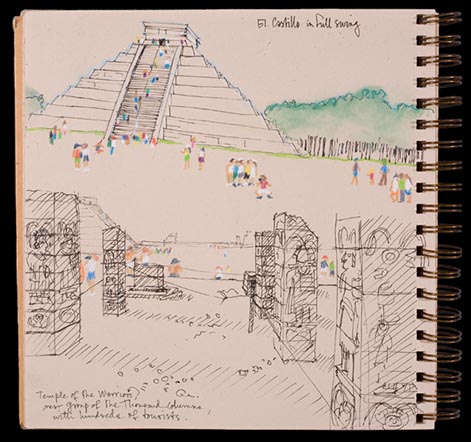 El Castillo in full swing
Temple of the Warriors,
near group of The Thousand Columns,
with hundreds of tourists.